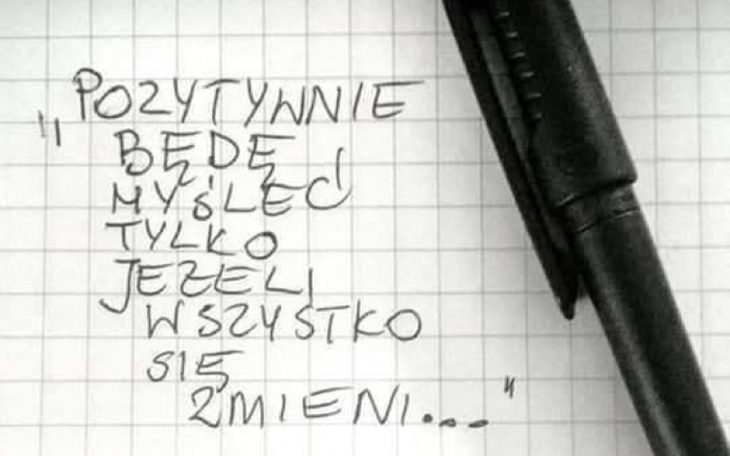 „POZYTYWNIE
BĘDĘ
MYŚLEĆ
TYLKO
JEŻELI
WSZYSTKO
SIĘ
ZMIENI..."